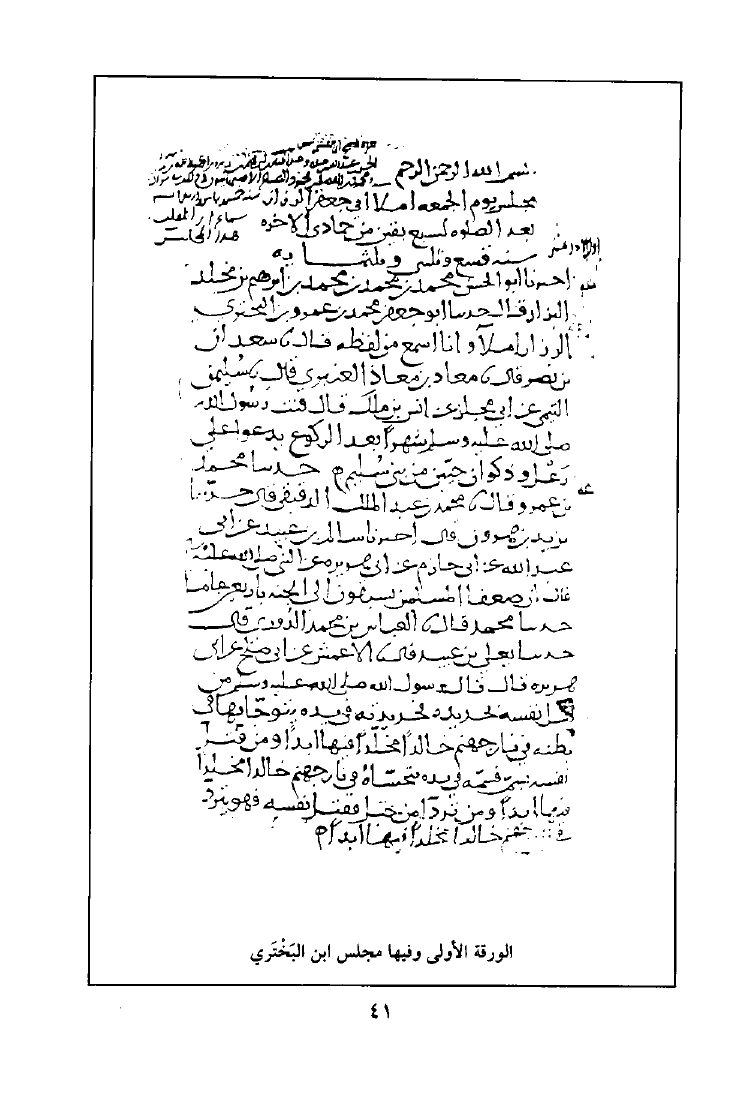 بسم الله الرحمن الرحيم
مجلس يوم الجمعه املا ابي جعفر الرزاز
بعد الصلوه لسبع بقين من جمادى الاخره
سنه تسع وثلثين وثلثمايه
اخبرنا ابو الحسن محمد بن محمد بن محمد بن ابرهيم بن مخلد
البزاز قال حدثنا ابو جعفر محمد بن عمرو بن البختري
الرزاز املاً وانا اسمع من لفظه قال ثنا سعدان
بن نصر قال ثنا معاذ بن معاذ العنبري قال ثنا سليمن
التيمي عن ابي مجلز عن انس بن ملك قال قنت رسول الله
صلى الله عليه وسلم شهراً بعد الركوع يدعوا على
رعل وذكوان حيين من بني سليم ه حدثنا محمد
بن عمرو قال ثنا محمد بن عبد الملك الدقيقي قال حدثنا
يزيد بن هرون قال اخبرنا سالم بن عبيد عن ابي
عبد الله عن ابي حازم عن ابي هريره عن النبي صلى الله عليه
قال ان ضعفا المسلمين يسبقون الى الجنه باربعين عاما
حدثنا محمد قال ثنا العباس بن محمد الدوري قال
حدثنا يعلى بن عبيد قال ثنا الاعمش عن ابي صلح عن ابي
هريره قال قال رسول الله صلى الله عليه وسلم من
قتل نفسه بحديده فحديدته في يده يتوجا بها في
بطنه في نار جهنم خالداً مخلداً فيها ابداً ومن قتل
نفسه بسم فسمه في يده يتحساه في نار جهنم خالدا مخلداً
فيها ابداً ومن تردا من جبل فقتل نفسه فهو يتردى
في نار جهنم خالداً مخلداً فيها ابداً ه
الورقة الأولى وفيها مجلس ابن البَخْتَري
٤١